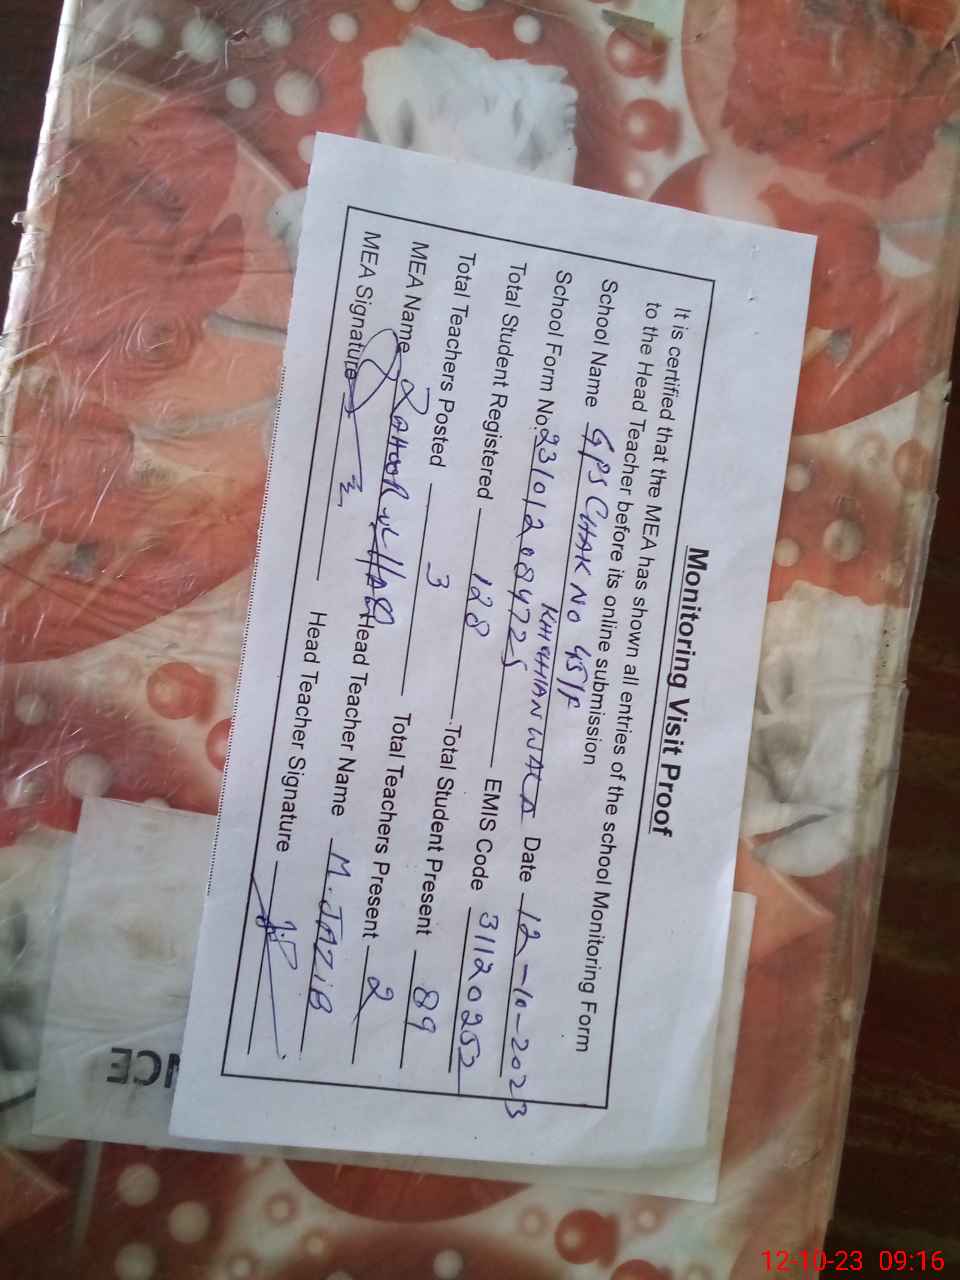 Monitoring Visit Proof
It is certified that the MEA has shown all entries of the school Monitoring Form
to the Head Teacher before its online submission
School Name GPS CHAK NO 45/F
KHICHIANWALA Date 12-10-2023
School Form No. 231012084725 EMIS Code 31120252
Total Student Registered 128 Total Student Present 89
Total Teachers Posted 3 Total Teachers Present 2
MEA Name ZAHOOR ul HAQ Head Teacher Name M. JAZIB
MEA Signature Head Teacher Signature
NCE
12-10-23 09:16